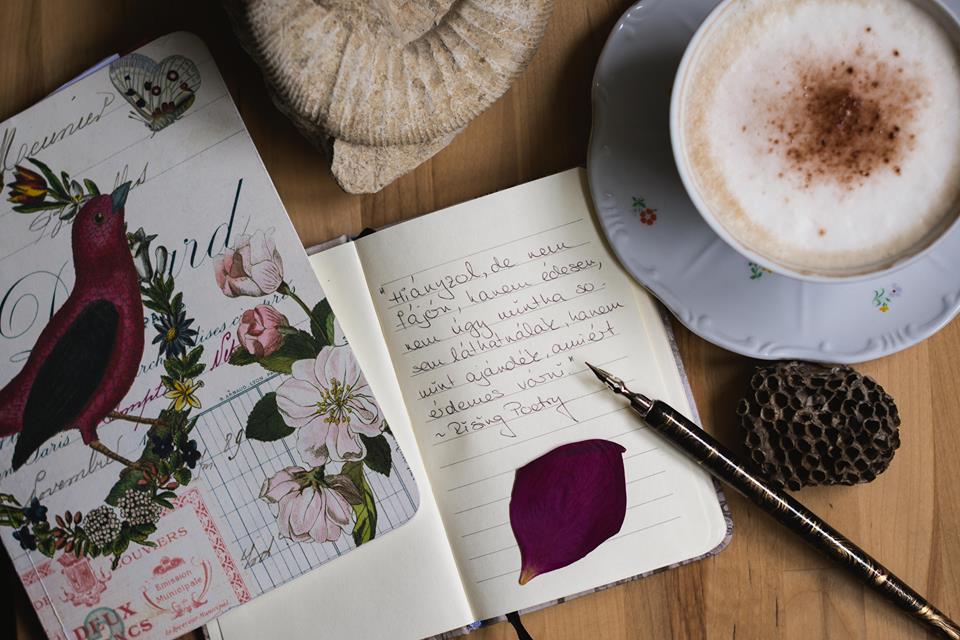 Meunier
ard
Novembre
Emission
Municipale
DEUX
"Hiányzol, de nem
fájón, hanem édesen,
nem úgy mintha so-
sem láthatnálak, hanem
mint ajándék, amiért
érdemes várni."
~ Rising Poetry